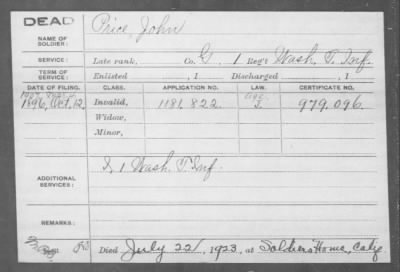 DEAD
NAME OF SOLDIER:
Price, John
SERVICE:
Late rank, Co. G, 1 Reg't Wash. T. Inf.
TERM OF SERVICE:
Enlisted , 1 Discharged , 1
DATE OF FILING. CLASS. APPLICATION NO. LAW. CERTIFICATE NO.
1896, Oct. 12 Invalid, 1181,822. 979,096.
Widow,
Minor,
ADDITIONAL SERVICES:
1 Wash. T. Inf.
REMARKS:
Died July 22, 1923, at Soldiers Home, Calif